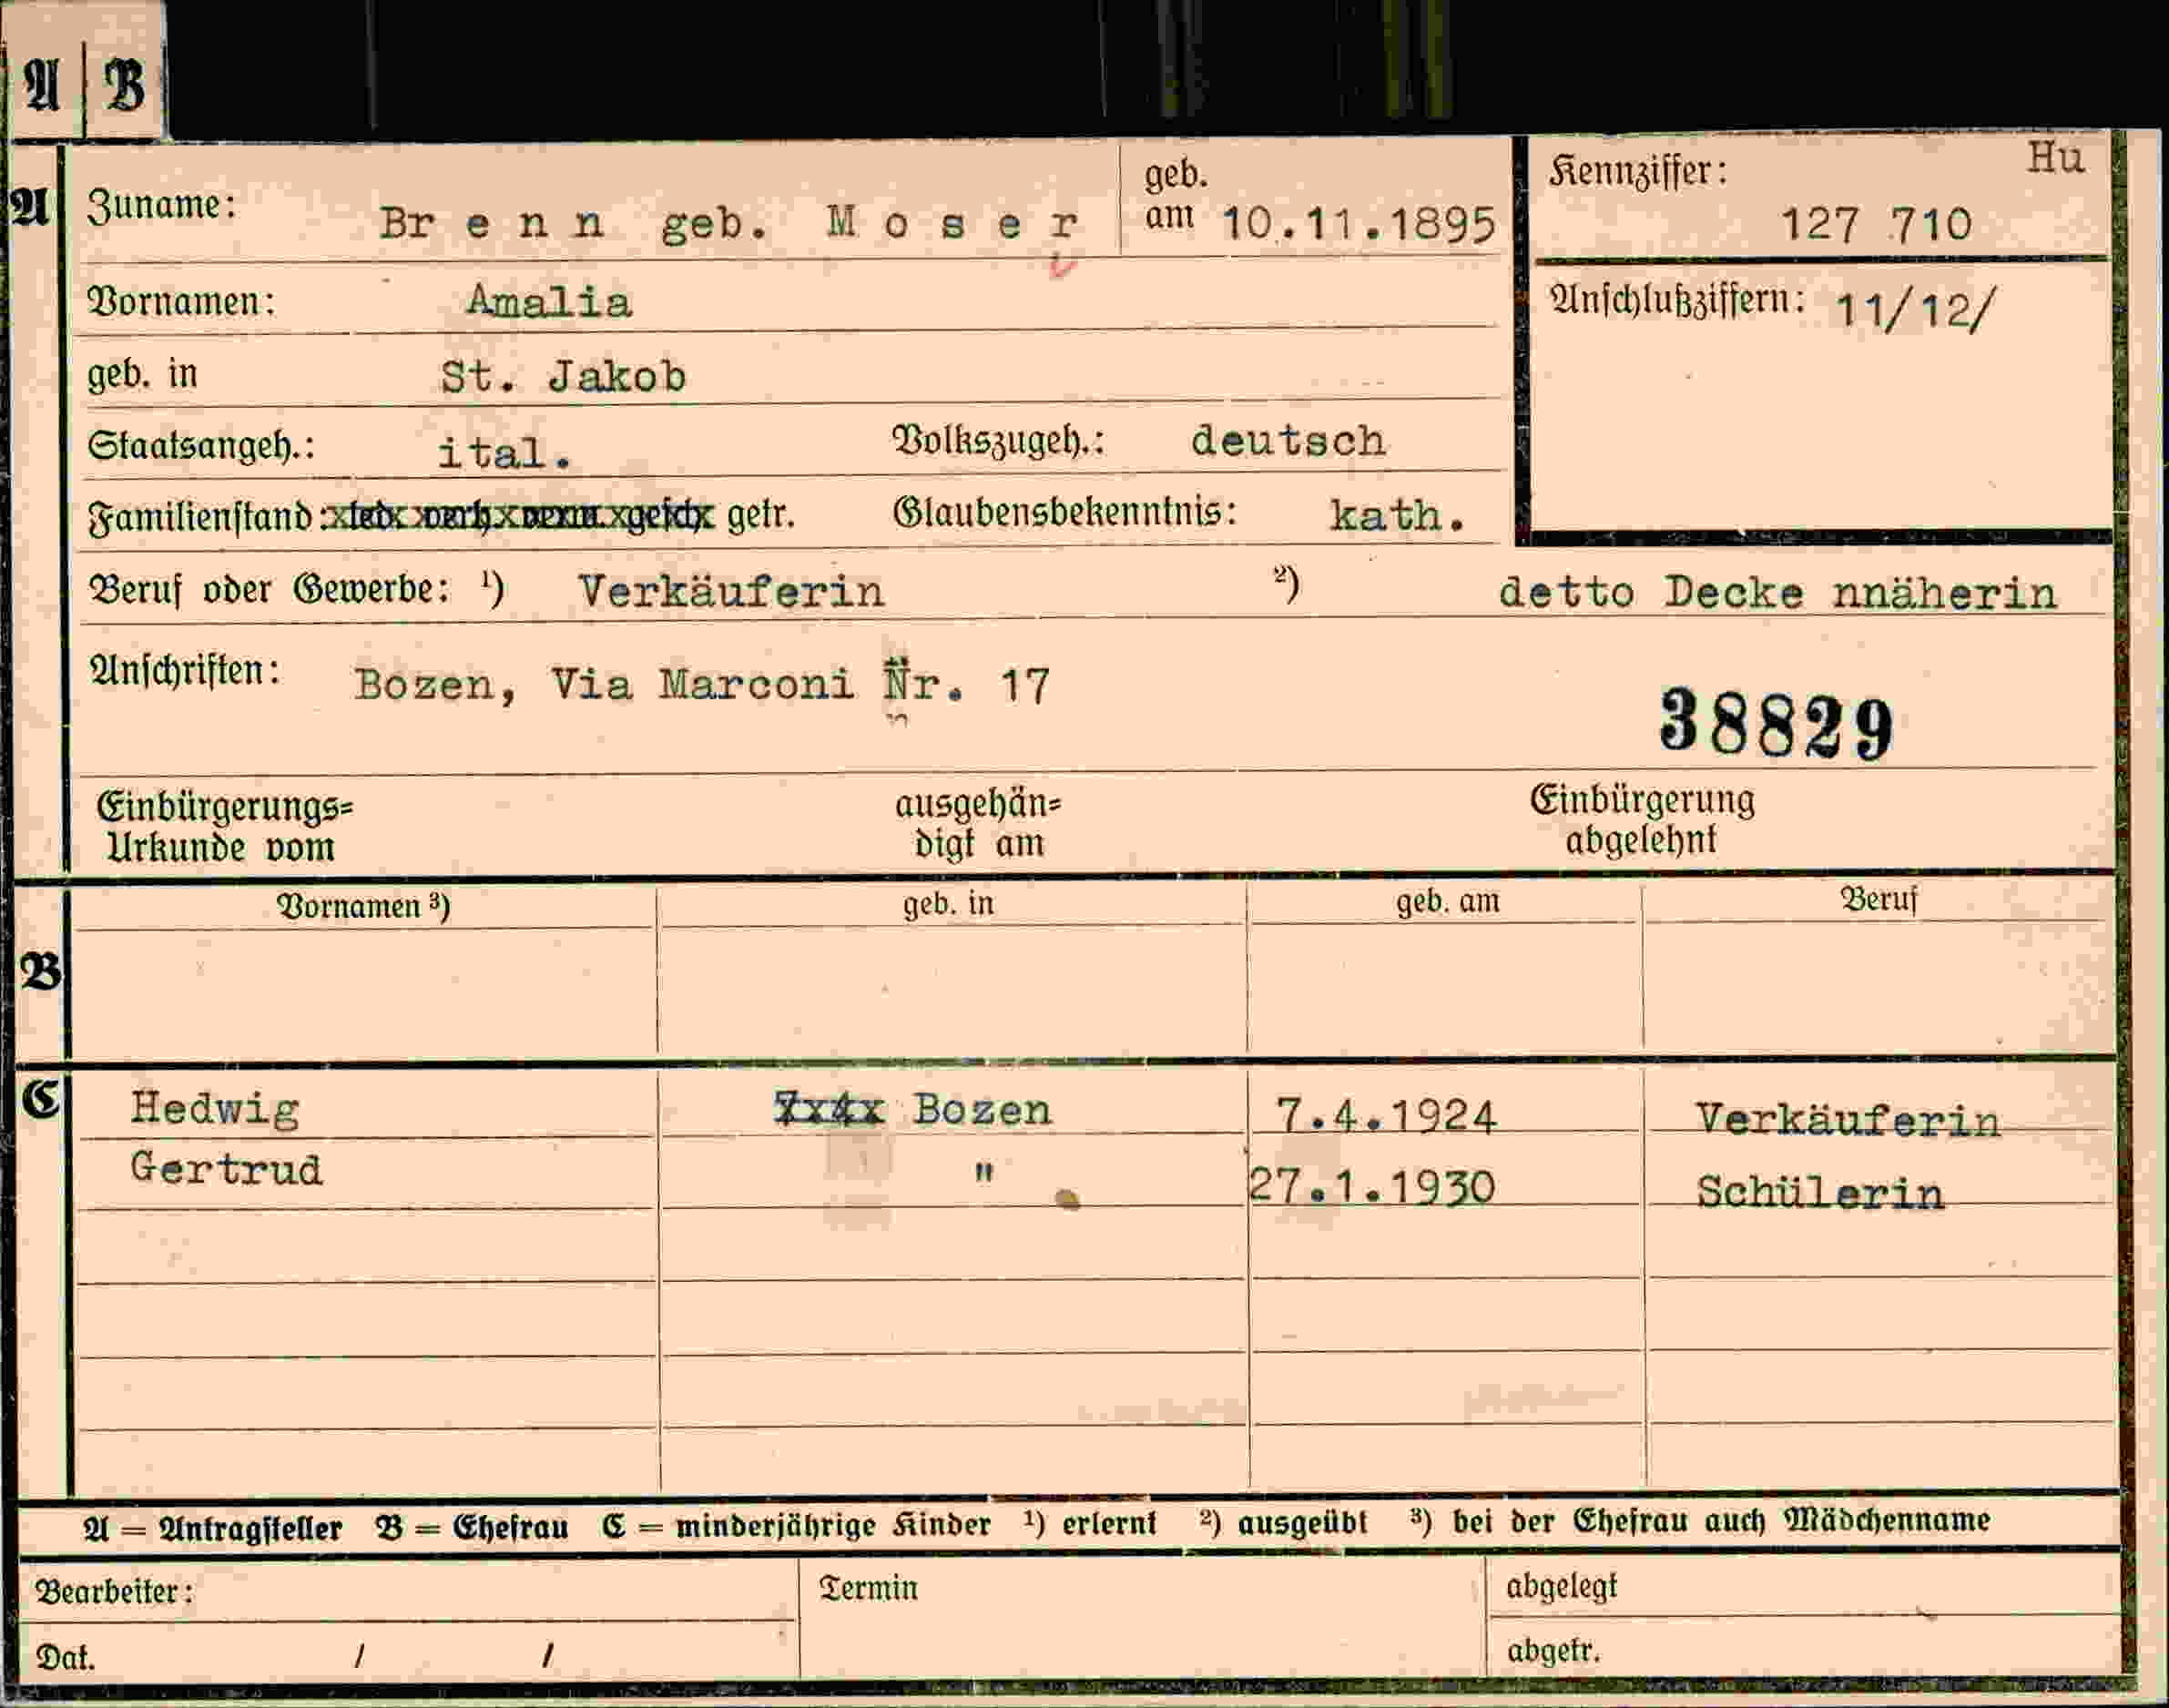 A B
A Zuname: Brenn geb. Moser geb. am 10.11.1895 Kennziffer: Hu
127 710
Vornamen: Amalia Anschlußziffern: 11/12/
geb. in St. Jakob
Staatsangeh.: ital. Volkszugeh.: deutsch
Familienstand: led. verh. verw. gesch. getr. Glaubensbekenntnis: kath.
Beruf oder Gewerbe: ¹) Verkäuferin ²) detto Decke nnäherin
Anschriften: Bozen, Via Marconi Nr. 17
38829
Einbürgerungs= ausgehän= Einbürgerung
Urkunde vom digt am abgelehnt
Vornamen ³) geb. in geb. am Beruf
B
C Hedwig 7x4x Bozen 7.4.1924 Verkäuferin
Gertrud " 27.1.1930 Schülerin
A = Antragsteller B = Ehefrau C = minderjährige Kinder ¹) erlernt ²) ausgeübt ³) bei der Ehefrau auch Mädchenname
Bearbeiter: Termin abgelegt
Dat. / / abgetr.